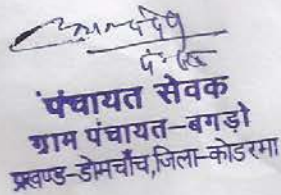 पंचायत सेवक
ग्राम पंचायत-बगड़ो
प्रखण्ड-डोमचाँच,जिला-कोडरमा